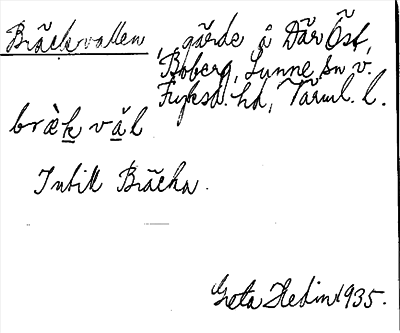 Bräckvallen, gärde å Där Öst,
Boberg, Sunne sn v.
Fryksd. hd, Värml. l.
bræ̀k vål
Intill Bräcka.
Greta Hedin 1935.